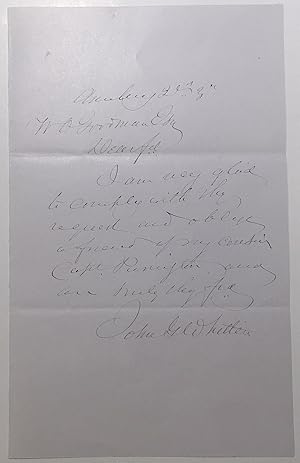 W. O. Goodman Esq
Dear fd
I am very glad
to comply with thy
request and oblige
a friend of my cousin
Capt. Purington, and
am truly thy fd
John G. Whittier